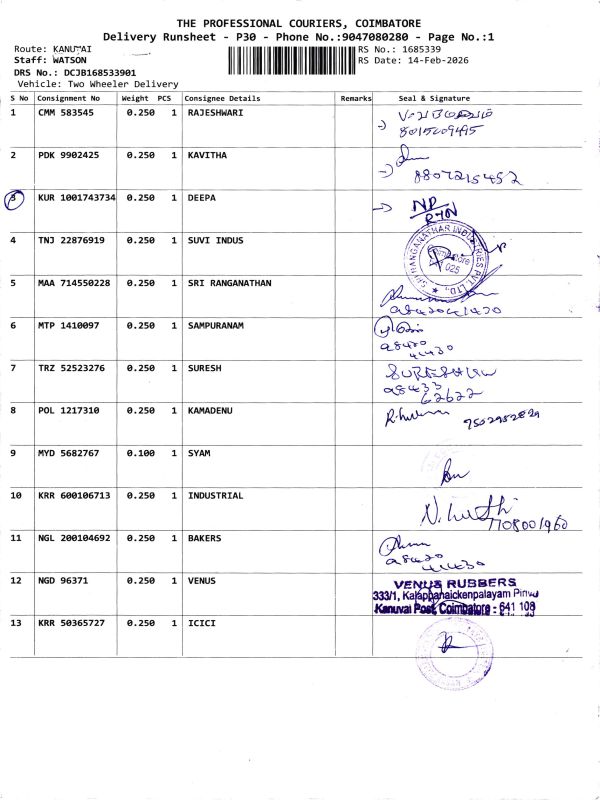 THE PROFESSIONAL COURIERS, COIMBATORE
Delivery Runsheet - P30 - Phone No.:9047080280 - Page No.:1
Route: KANUVAI
RS No.: 1685339
Staff: WATSON
RS Date: 14-Feb-2026
DRS No.: DCJB168533901
Vehicle: Two Wheeler Delivery
S No Consignment No Weight PCS Consignee Details Remarks Seal & Signature
1 CMM 583545 0.250 1 RAJESHWARI
2 PDK 9902425 0.250 1 KAVITHA
8807215452
3 KUR 1001743734 0.250 1 DEEPA NP
RTN
4 TNJ 22876919 0.250 1 SUVI INDUS
5 MAA 714550228 0.250 1 SRI RANGANATHAN
6 MTP 1410097 0.250 1 SAMPURANAM
7 TRZ 52523276 0.250 1 SURESH
8 POL 1217310 0.250 1 KAMADENU
9 MYD 5682767 0.100 1 SYAM
10 KRR 600106713 0.250 1 INDUSTRIAL
7708001960
11 NGL 200104692 0.250 1 BAKERS
12 NGD 96371 0.250 1 VENUS VENUS RUBBERS
333/1, Kalappanaickenpalayam Pirivu
Kanuvai Post, Coimbatore - 641 108
13 KRR 50365727 0.250 1 ICICI